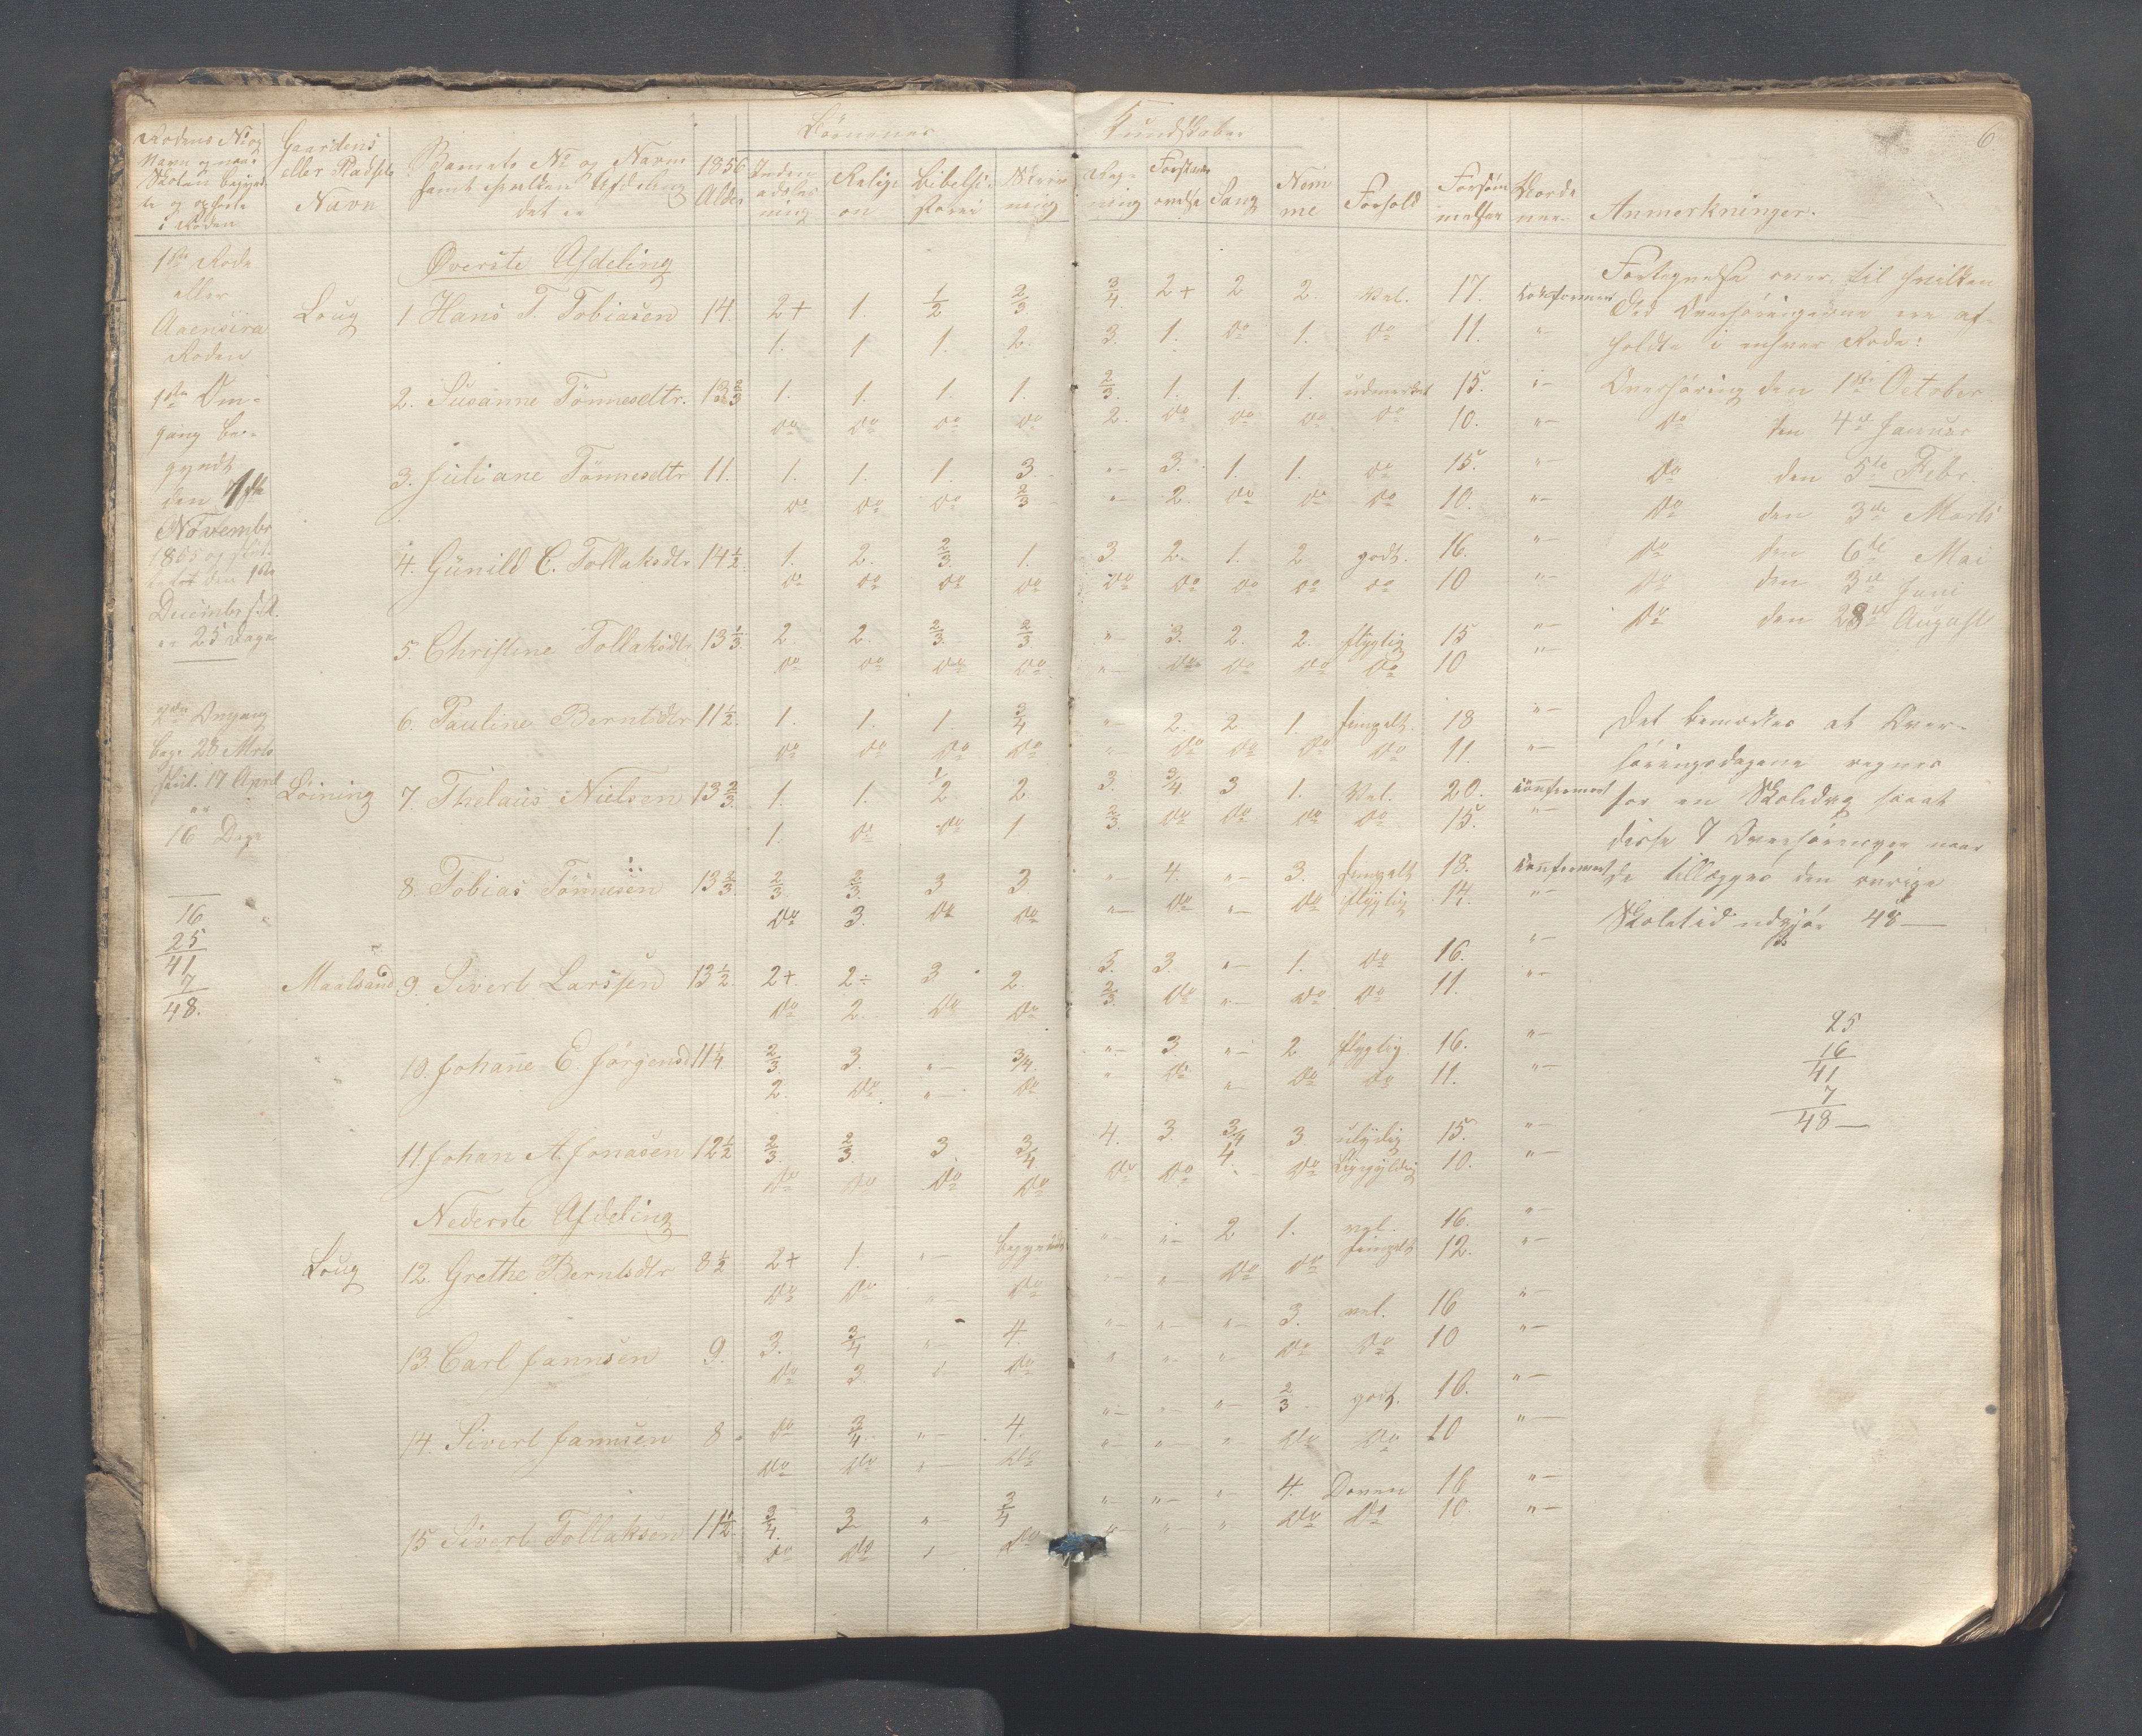 6
Børnenes Kundskaber
Rodens No og Navn og naar Skolen begynd-te og ophørte i Roden | Gaardens eller Pladsets Navn | Barnets No og Navn samt hvilken Afdeling det er | 1856 Alder | Inden-adslæs-ning | Religi-on | Bibelhi-storie | Skriv-ning | Reg-ning | Forstands-øvelse | Sang | Nem-me | Forhold | Forsøm-melser | Anmerkninger.
Øverste Afdeling
Loug 1 Hans T. Tobiasen 14. 2+ 1. 1/2 2/3 3/4. 2+ 2 2. Vel. 17. Confirmert
1. 1 1. 2. 3. 1. Do 1. Do 11. "-
2. Susanne Tønnesdtr. 13 2/3 1. 1. 1. 1. 2/3. 1. 1. 1. udmerket 15. "-
Do Do Do Do 2. Do Do Do Do 10. "-
3. Juliane Tønnesdtr 11. 1. 1. 1. 3 "- 3. 1. 1. Do 15. "-
Do Do Do 2/3 "- 2. Do Do Do 10. "-
4. Günild C. Tollaksdtr 14 1/2. 1. 2. 2/3. 1. 3. 2. 1. 2 godt. 16. "-
Do Do Do Do Do Do Do Do Do 10 "-
5. Christine Tollaksdtr 13 1/3. 2. 2. 2/3. 2/3 "- 3. 2. 2. flygtig 15 "-
Do Do Do Do "- Do Do Do Do 10 "-
6. Pauline Berntsdtr 11 1/2. 1. 1. 1. 3/4 "- 2. 2. 1. 18 "-
Do Do Do Do " Do Do Do Do 11. "-
Loining 7. Thelaus Nielsen 13 2/3. 1. 1. 1/2 2 3. 3/4. 3 1. Vel. 20. Confirmert
1. Do Do 1 2/3. Do Do Do Do 15. "-
8. Tobias Tønnesen 13 2/3. 2/3. 2/3. 3 3. "- 4. "- 3. 18. Confirmert
Do 3. Do Do "- Do "- Do flygtig 14. "-
Maalsand 9. Sivert Larssen 13 1/2. 2+. 2÷ 3 2. 3. 3. "- 1. Do 16. "-
Do 2. Do Do 2/3. Do "- Do Do 11. "-
10. Johane E. Jørgensd 11 1/4 2/3. 3. "- 3/4. "- 3. "- 2 flygtig 16. "-
2. Do. "- Do " Do "- Do Do 11. "-
11. Johan A. Jonasen 12 1/2 2/3. 2/3. 3. 3/4 4. 3. 3/4 3. ulydig 15. "-
Do Do Do Do Do Do 4. Do Ligegyldig 10. "-
Nederste Afdeling
Loug 12. Grethe Berntsdtr 8 1/2 2+ 1. "- "- "- 2 1. vel. 16. "-
Do Do "- Do "- " Do Do 12. "-
13. Carl Jannsen 9. 3. 3/4 "- 4. "- "- "- 3. vel. 16 "-
Do 3. " Do " "- " Do Do 10 "-
14. Sivert Jannsen 8 Do 3/4 "- 4. "- "- "- 2/3 godt. 16. "-
Do Do "- Do "- "- " Do Do 10 "-
15 Sivert Tollaksen 11 1/2. 3/4. 3 "- 3/4 "- "- "- 4. Doven 16 "-
Do Do "- Do "- "- " Do Do 10. "-
1ste Rode
eller
Aaensira
Roden
1ste Om-
gang be-
gyndt
den
Novembr
1855 og slut-
tet den 1ste
Decimbr s.A.
er 25 Dage
2den Omgang
beg. 28 Mrts
slut. 17 April
er
16 Dage
16
25
41
7
48.
Fortegnelse over til hvilken
Tid Overhøringerne ere af-
holdte i enhver Rode:
Overhøring den 1ste October.
Do den 4de Januar
Do den 5te Febr.
Do den 3de Marts
Do den 6te Mai
Do den 3de Juni
Do den 28de August
Det bemærkes at Over-
høringsdagene regnes
for en Skoledag saaat
disse 7 Overhøringer naar
de tillægges den øvrige
Skoletid udgjør 48 —
25
16
41
7
48 —